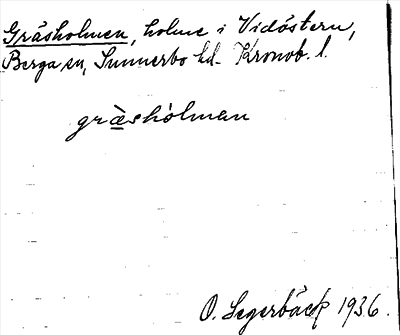 Gräsholmen, holme i Vidöstern,
Berga sn, Sunnerbo hd. Kronob. l.
græshòlman
O. Segerbäck 1936.